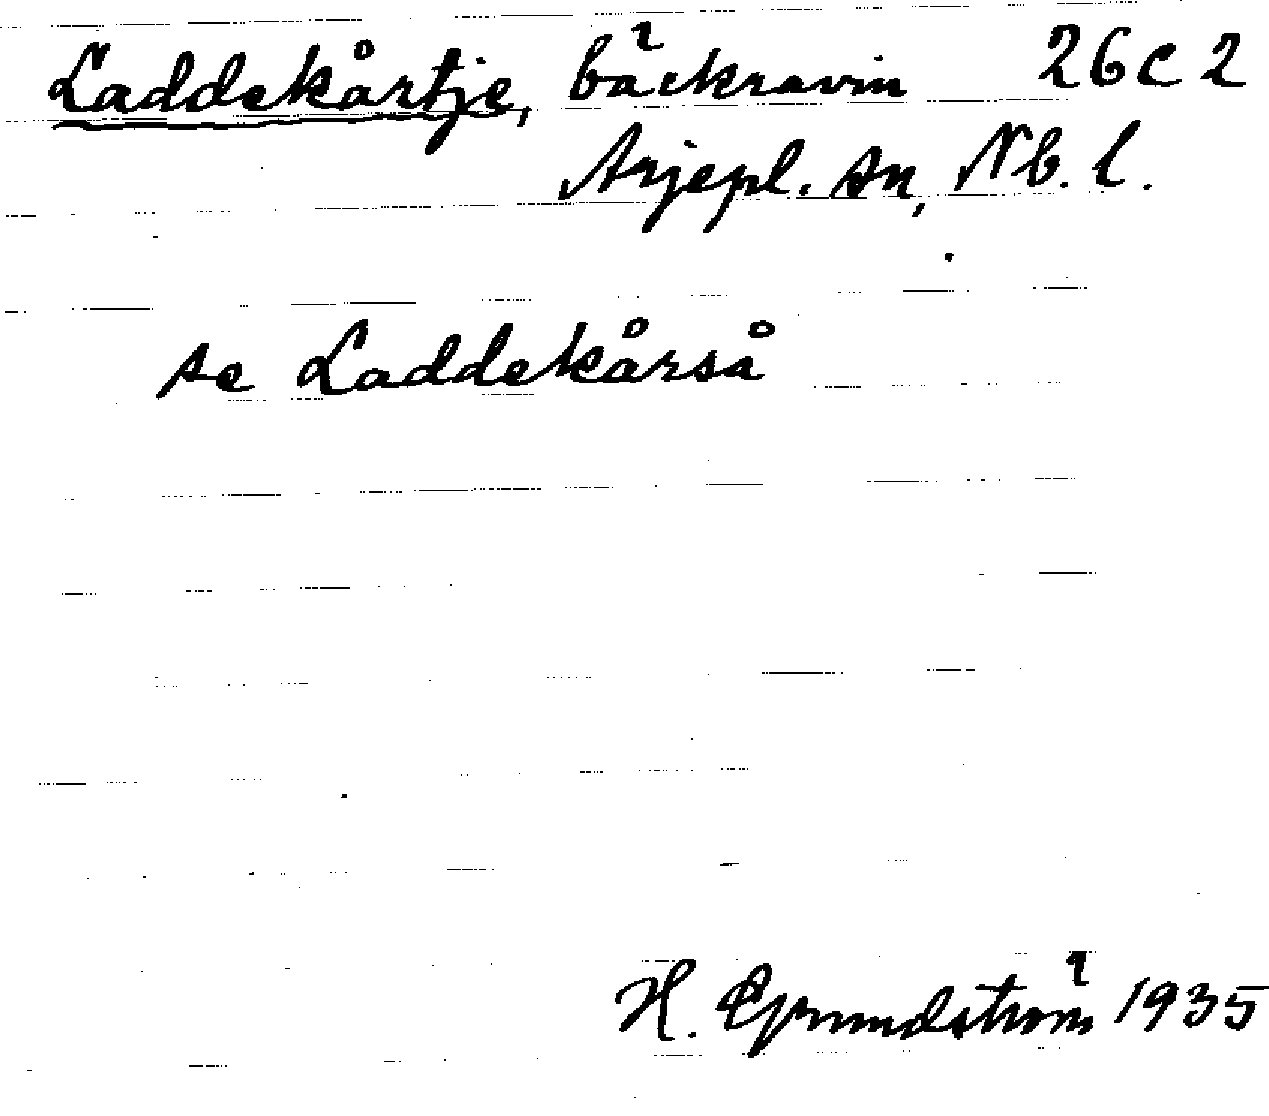 Laddekårtje, bäckravin 26c2
Arjepl. sn, Nb. l.
se Laddekårså
H. Grundström 1935